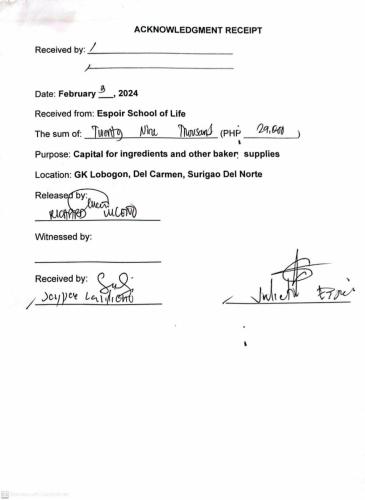 ACKNOWLEDGMENT RECEIPT
Received by:
Date: February 8, 2024
Received from: Espoir School of Life
The sum of: Twenty Nine Thousand (PHP 29,000 )
Purpose: Capital for ingredients and other baker supplies
Location: GK Lobogon, Del Carmen, Surigao Del Norte
Released by:
RICHARD
Witnessed by:
Received by: